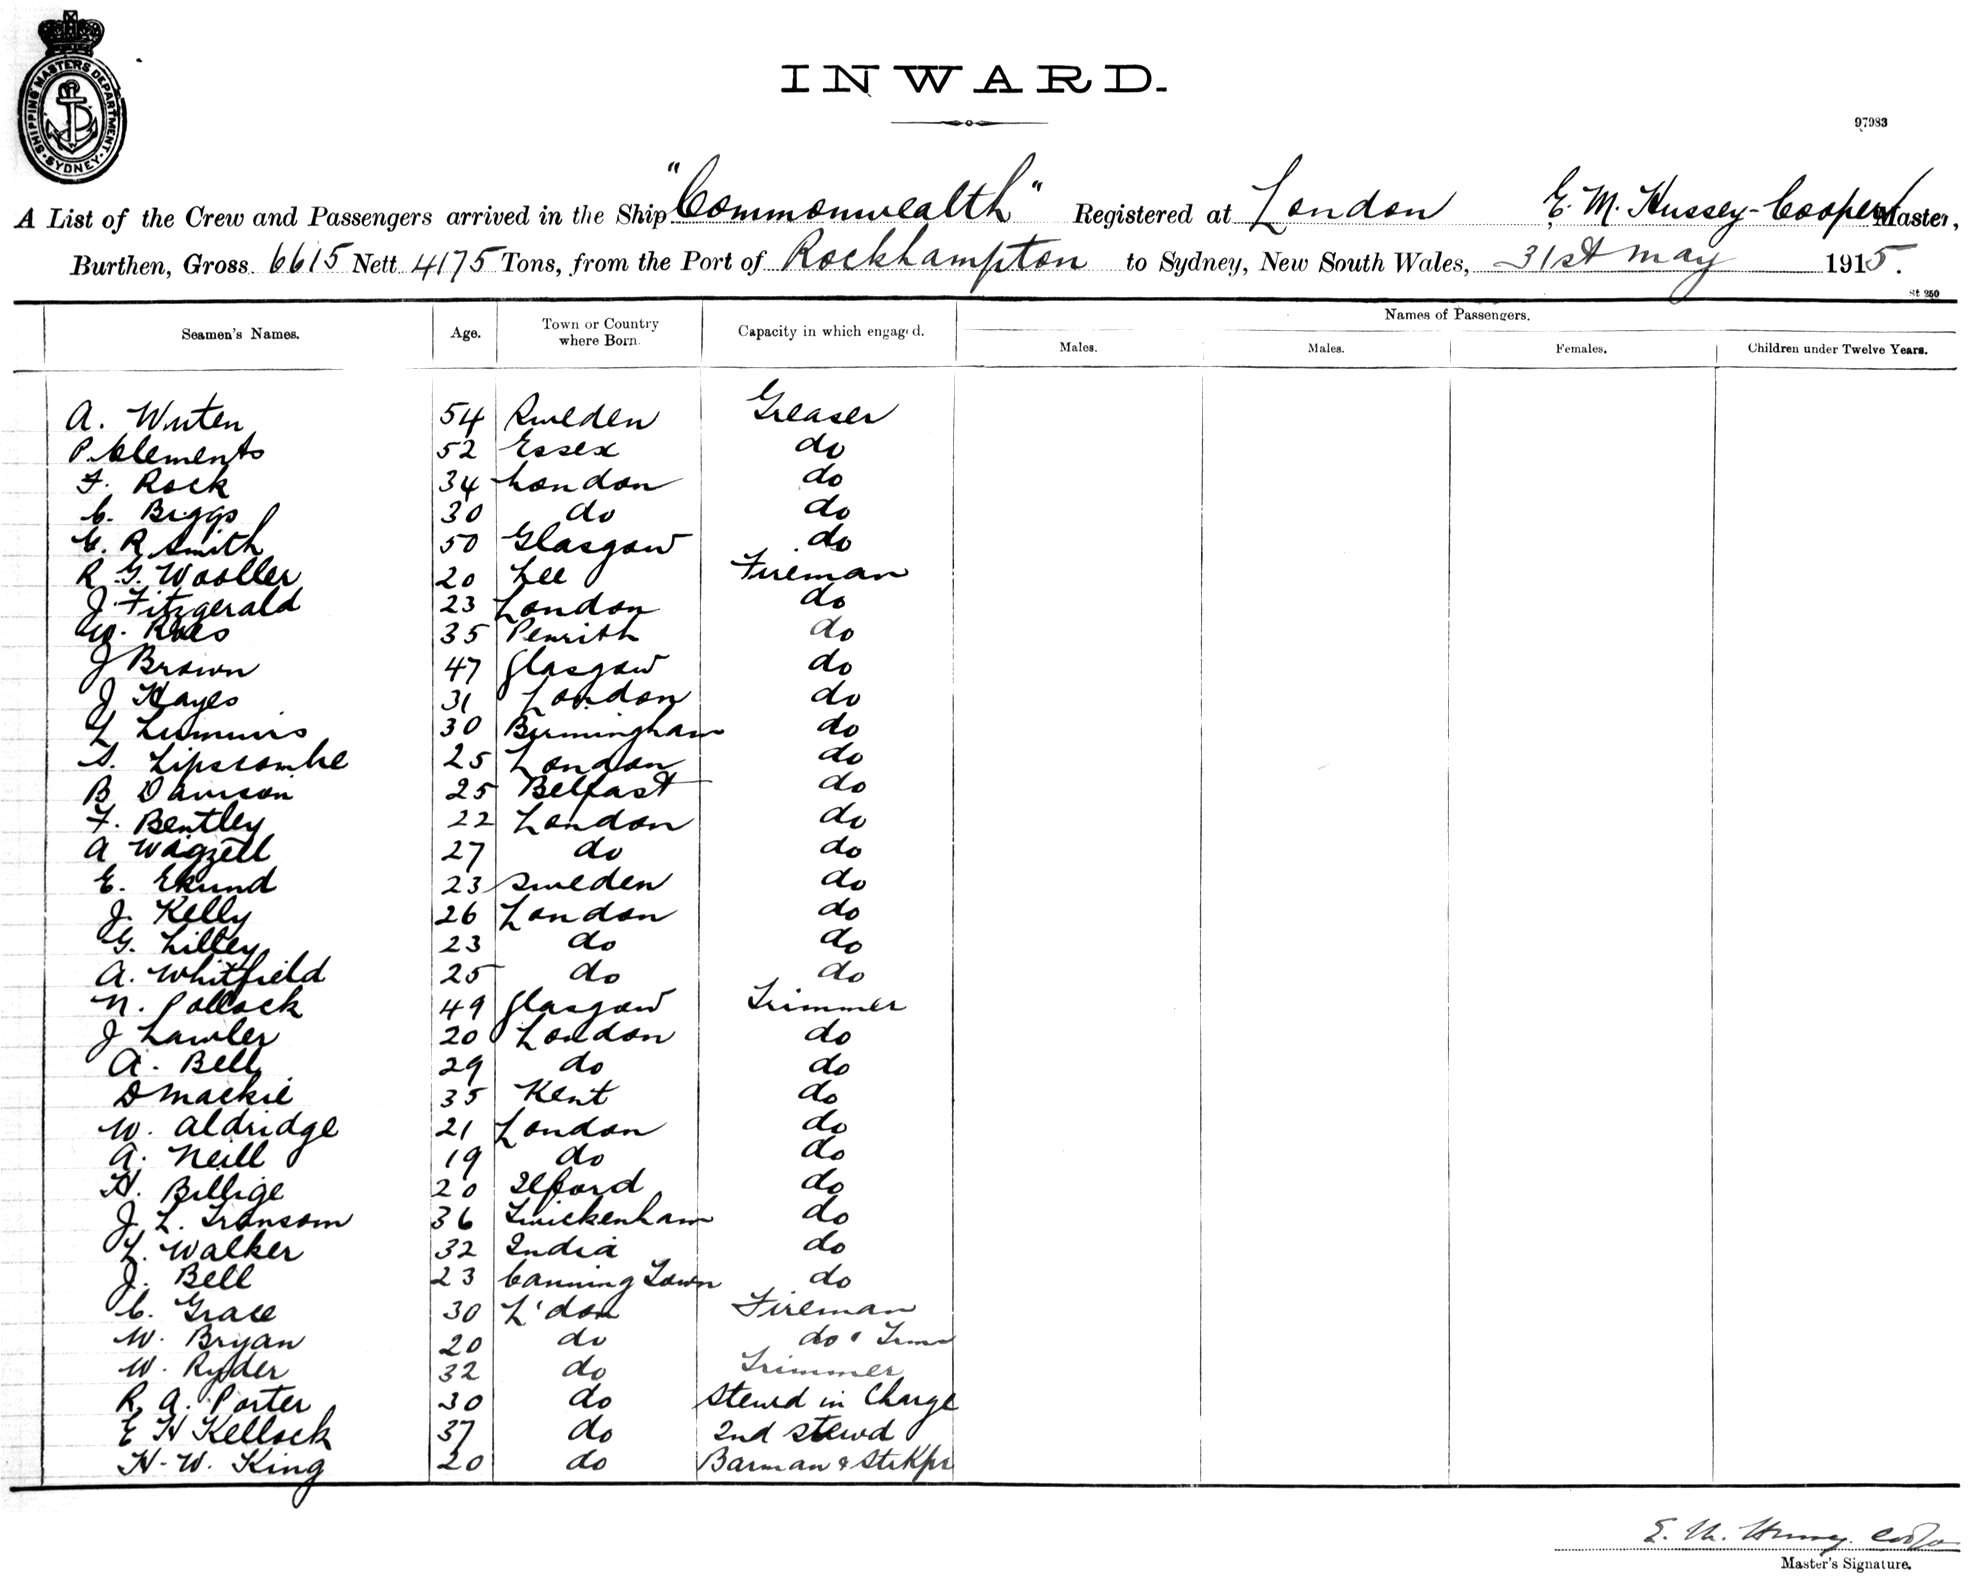 SHIPPING MASTERS DEPARTMENT. SYDNEY.
INWARD.
97983
A List of the Crew and Passengers arrived in the Ship "Commonwealth" Registered at London E. M. Hussey-Cooper Master,
Burthen, Gross 6615 Nett 4175 Tons, from the Port of Rockhampton to Sydney, New South Wales, 31st May 1915.
St 250
Seamen's Names. Age. Town or Country where Born. Capacity in which engaged. Names of Passengers.
Males. Males. Females. Children under Twelve Years.
A. 54 Sweden Greaser
P. Clements 52 Essex do
F. Rock 34 London do
C. Biggs 30 do do
G. R Smith 50 Glasgow do
R. G. Wooller 20 Lee Fireman
J. Fitzgerald 23 London do
W. 35 Penrith do
J Brown 47 Glasgow do
J Hayes 31 London do
L 30 Birmingham do
S. Lipscombe 25 London do
B Davison 25 Belfast do
F. Bentley 22 London do
A Wagzell 27 do do
E. Eklund 23 Sweden do
J. Kelly 26 London do
G. Lilley 23 do do
A. Whitfield 25 do do
N. Pollock 49 Glasgow Trimmer
J Lawler 20 London do
A. Bell 29 do do
D Mackie 35 Kent do
W. Aldridge 21 London do
A. Neill 19 do do
H. Billige 20 Ilford do
J. L. Transom 36 Twickenham do
L. Walker 32 India do
J. Bell 23 Canning Town do
C. Grace 30 L'don Fireman
W. Bryan 20 do do & Trimr
W. Ryder 32 do Trimmer
R. A. Porter 30 do Stewd in Charge
E H Kellock 37 do 2nd Stewd
H. W. King 20 do Barman & StKpr
E. M. Hussey. Cooper
Master's Signature.